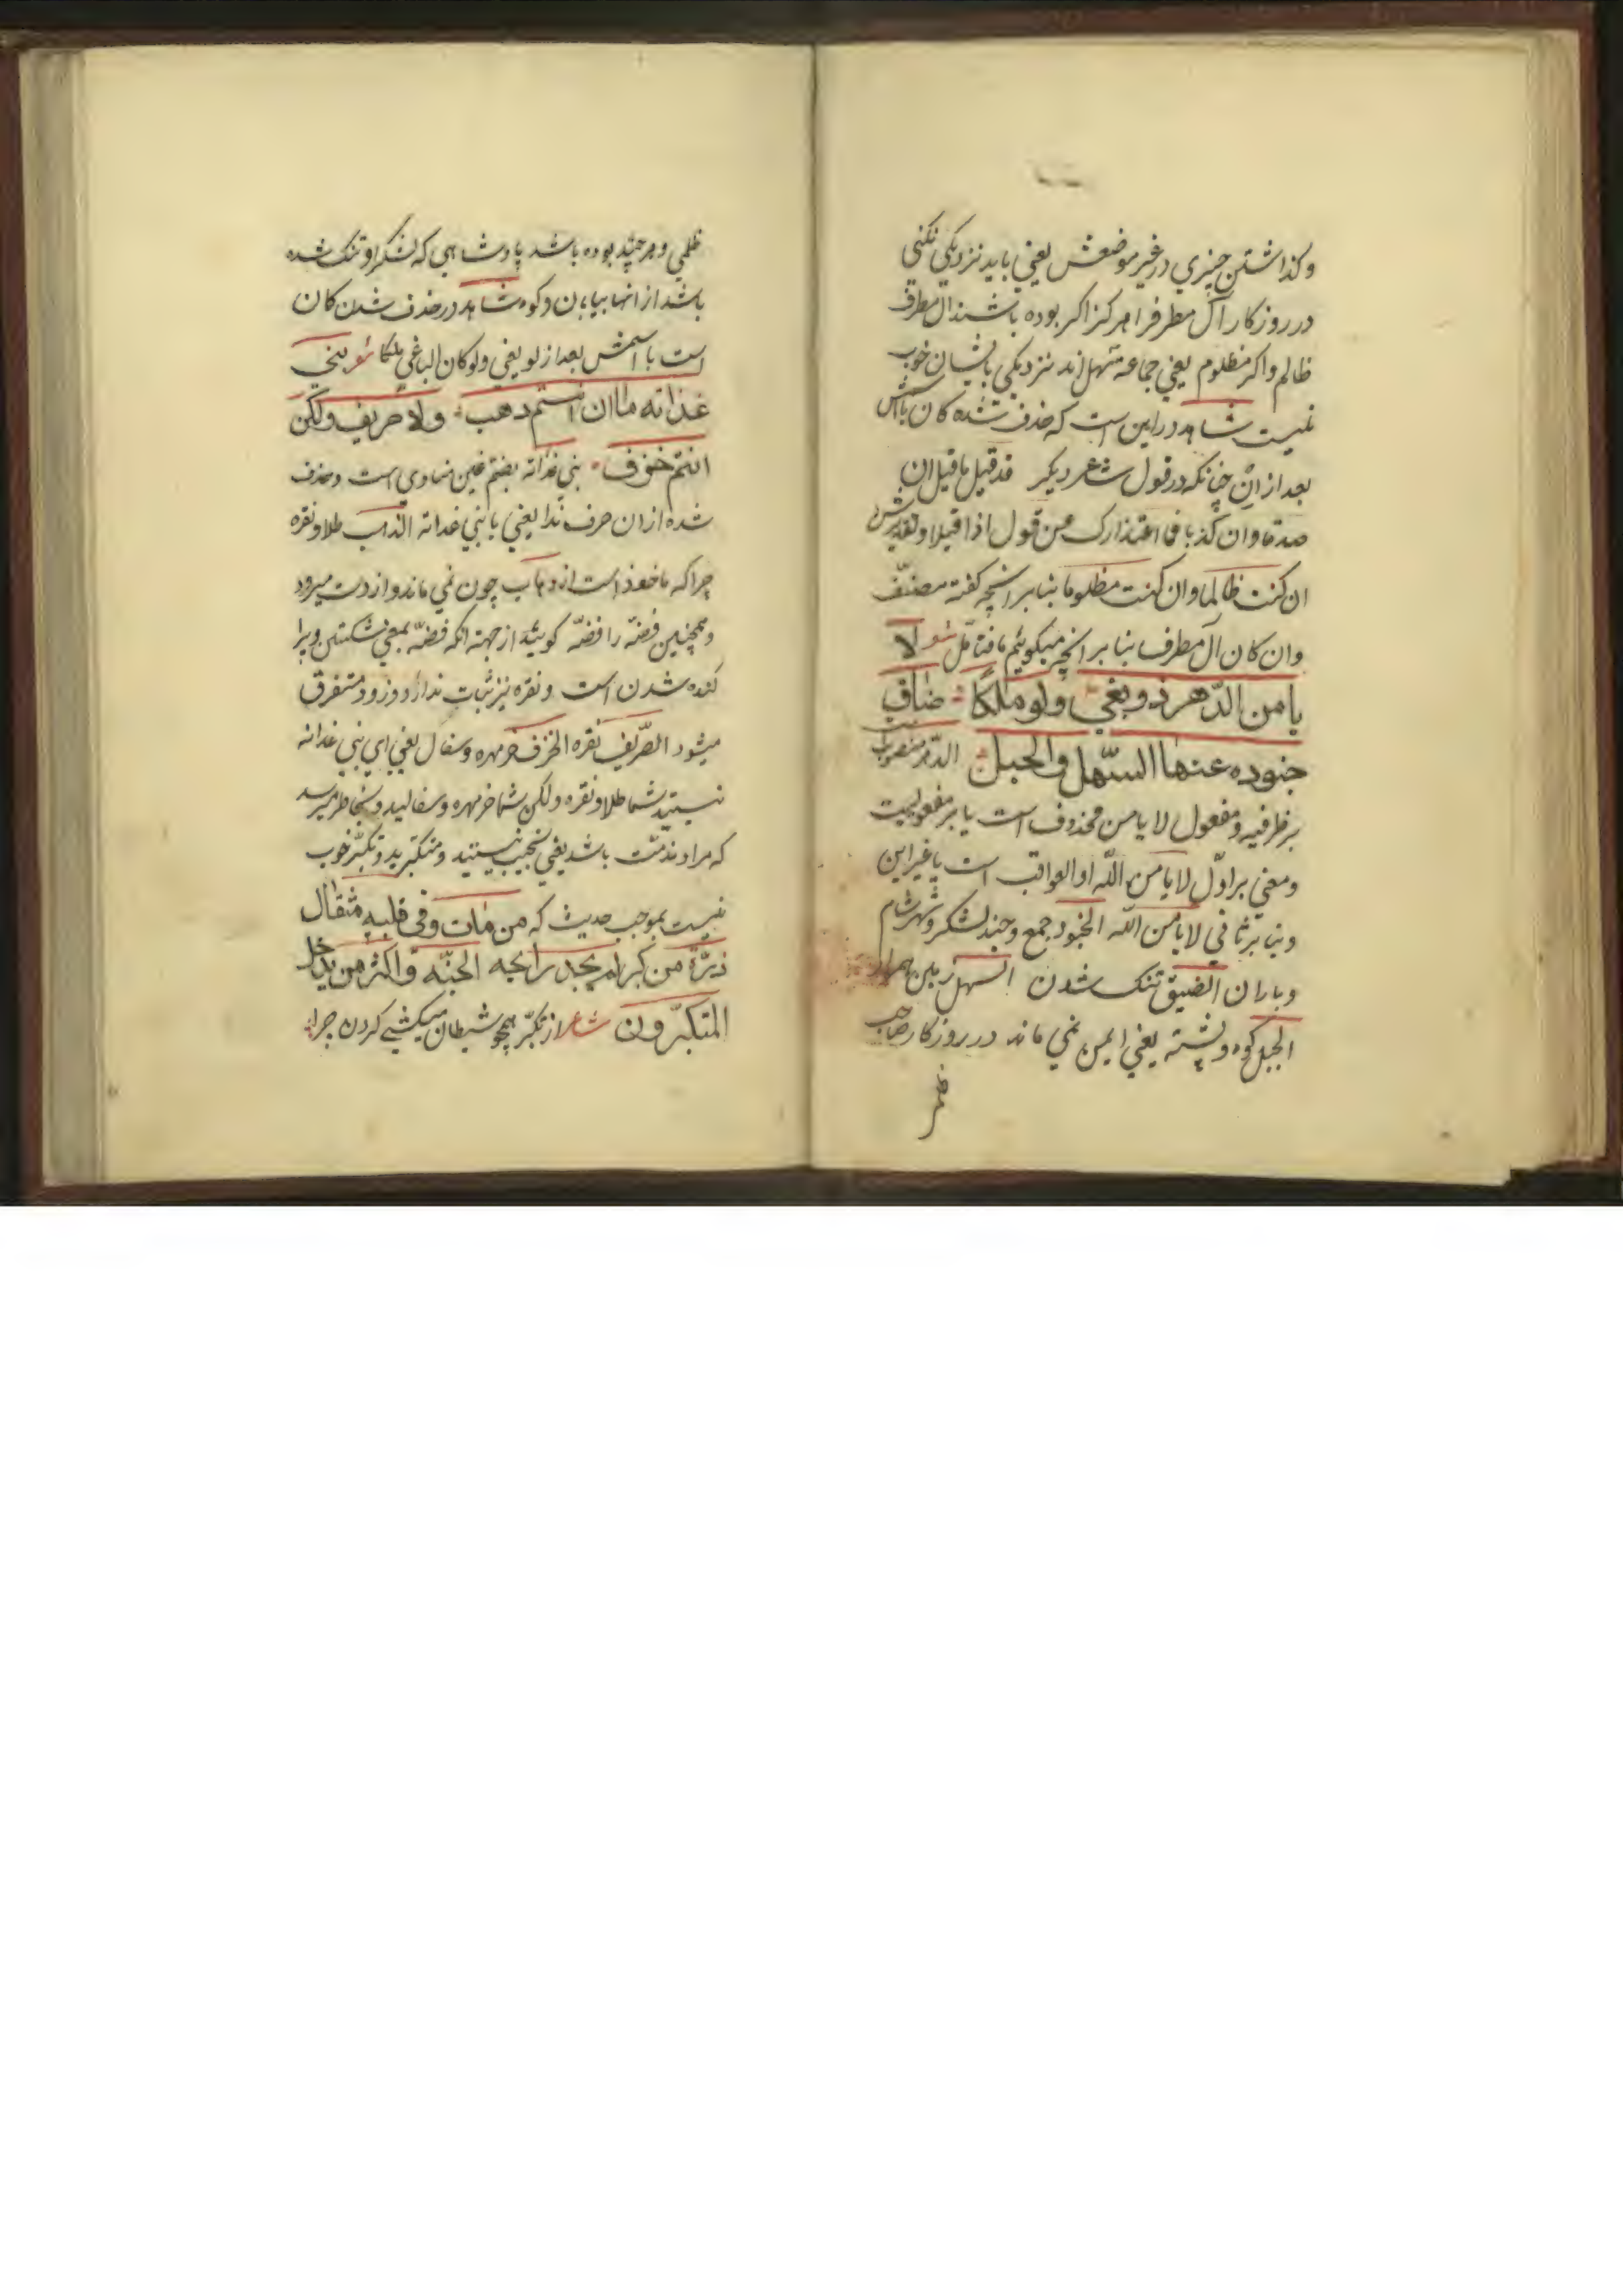 وكذاشتن چيزي در غير موضعش يعني بايد نزديكي نكني
در روزكار آل مطرف را هركز اكر بوده باشند ال مطرف
ظالم واكر مظلوم يعني جماعه متهل اند نزديكي بايشان خوب
نيست شاهد در اين است كه حذف شده كان با اسمش
بعد از ان چنانكه در قول شاعر ديكر قد قيل ما قيل ان
صدقا وان كذبا فما اعتذارك من قول اذا قيلا وتقديرش
ان كنت ظالما وان كنت مظلوما بنا بر انچه كفته مصنف
وان كان آل مطرف بنا بر انچه ميكوئيم ما فتامّل شعر لا
يا من الدّهر ذو بغي ولو ملكًا ضاق
جنوده عنها السّهل والجبل الدّهر منصوب است
بر ظرفيه ومفعول لا يا من محذوف است يا بر مفعوليت
ومعني بر اوّل لا يا من اللّه او العواقب است يا غير اين
وبنا بر ثاني لا يا من اللّه الجنود جمع وجند لشكر وشهر شام
وياران الضيق تنك شدن السهل زمين هموار
الجبل كوه وپشته يعني ايمن نمي ماند در روزكار صاحب
ظلمي وهر چند بوده باشد پادشاهي كه لشكر او تنك شده
باشد از انها بيابان وكوه شاهد در حذف شدن كان
است با اسمش بعد از لو يعني ولو كان الباغي ملكا شعر بني
غدانه ما ان انتم ذهب ولا صريف ولكن
انتم خزف بني غدانه بضم غين منادي است وحذف
شده از ان حرف ندا يعني يا بني غدانه الذهب طلا ونقره
چرا كه ماخوذ است از ذهاب چون نمي ماند و از دست ميرود
وهمچنين فضّه را فضّه كويند از جهة انكه فضّه بمعني شكستن وپرا
كنده شدن است ونقره نيز ثبات ندارد وزود متفرق
ميشود الصّريف نقره الخزف خرمهره وسفال يعني اي بني غدانه
نيستيد شما طلا ونقره ولكن شما خرمهره وسفاليد وبخاطر ميرسد
كه مراد مذمّت باشد يعني نجيب نيستيد ومتكبّريد وتكبّر خوب
نيست بموجب حديث كه من مات وفي قلبه مثقال
ذرّة من كبر لم يجد رايحه الجنّه واكثر من يدخل
المتكبّرون شاعر از تكبّر همچو شيطان ميكشي كردن چرا